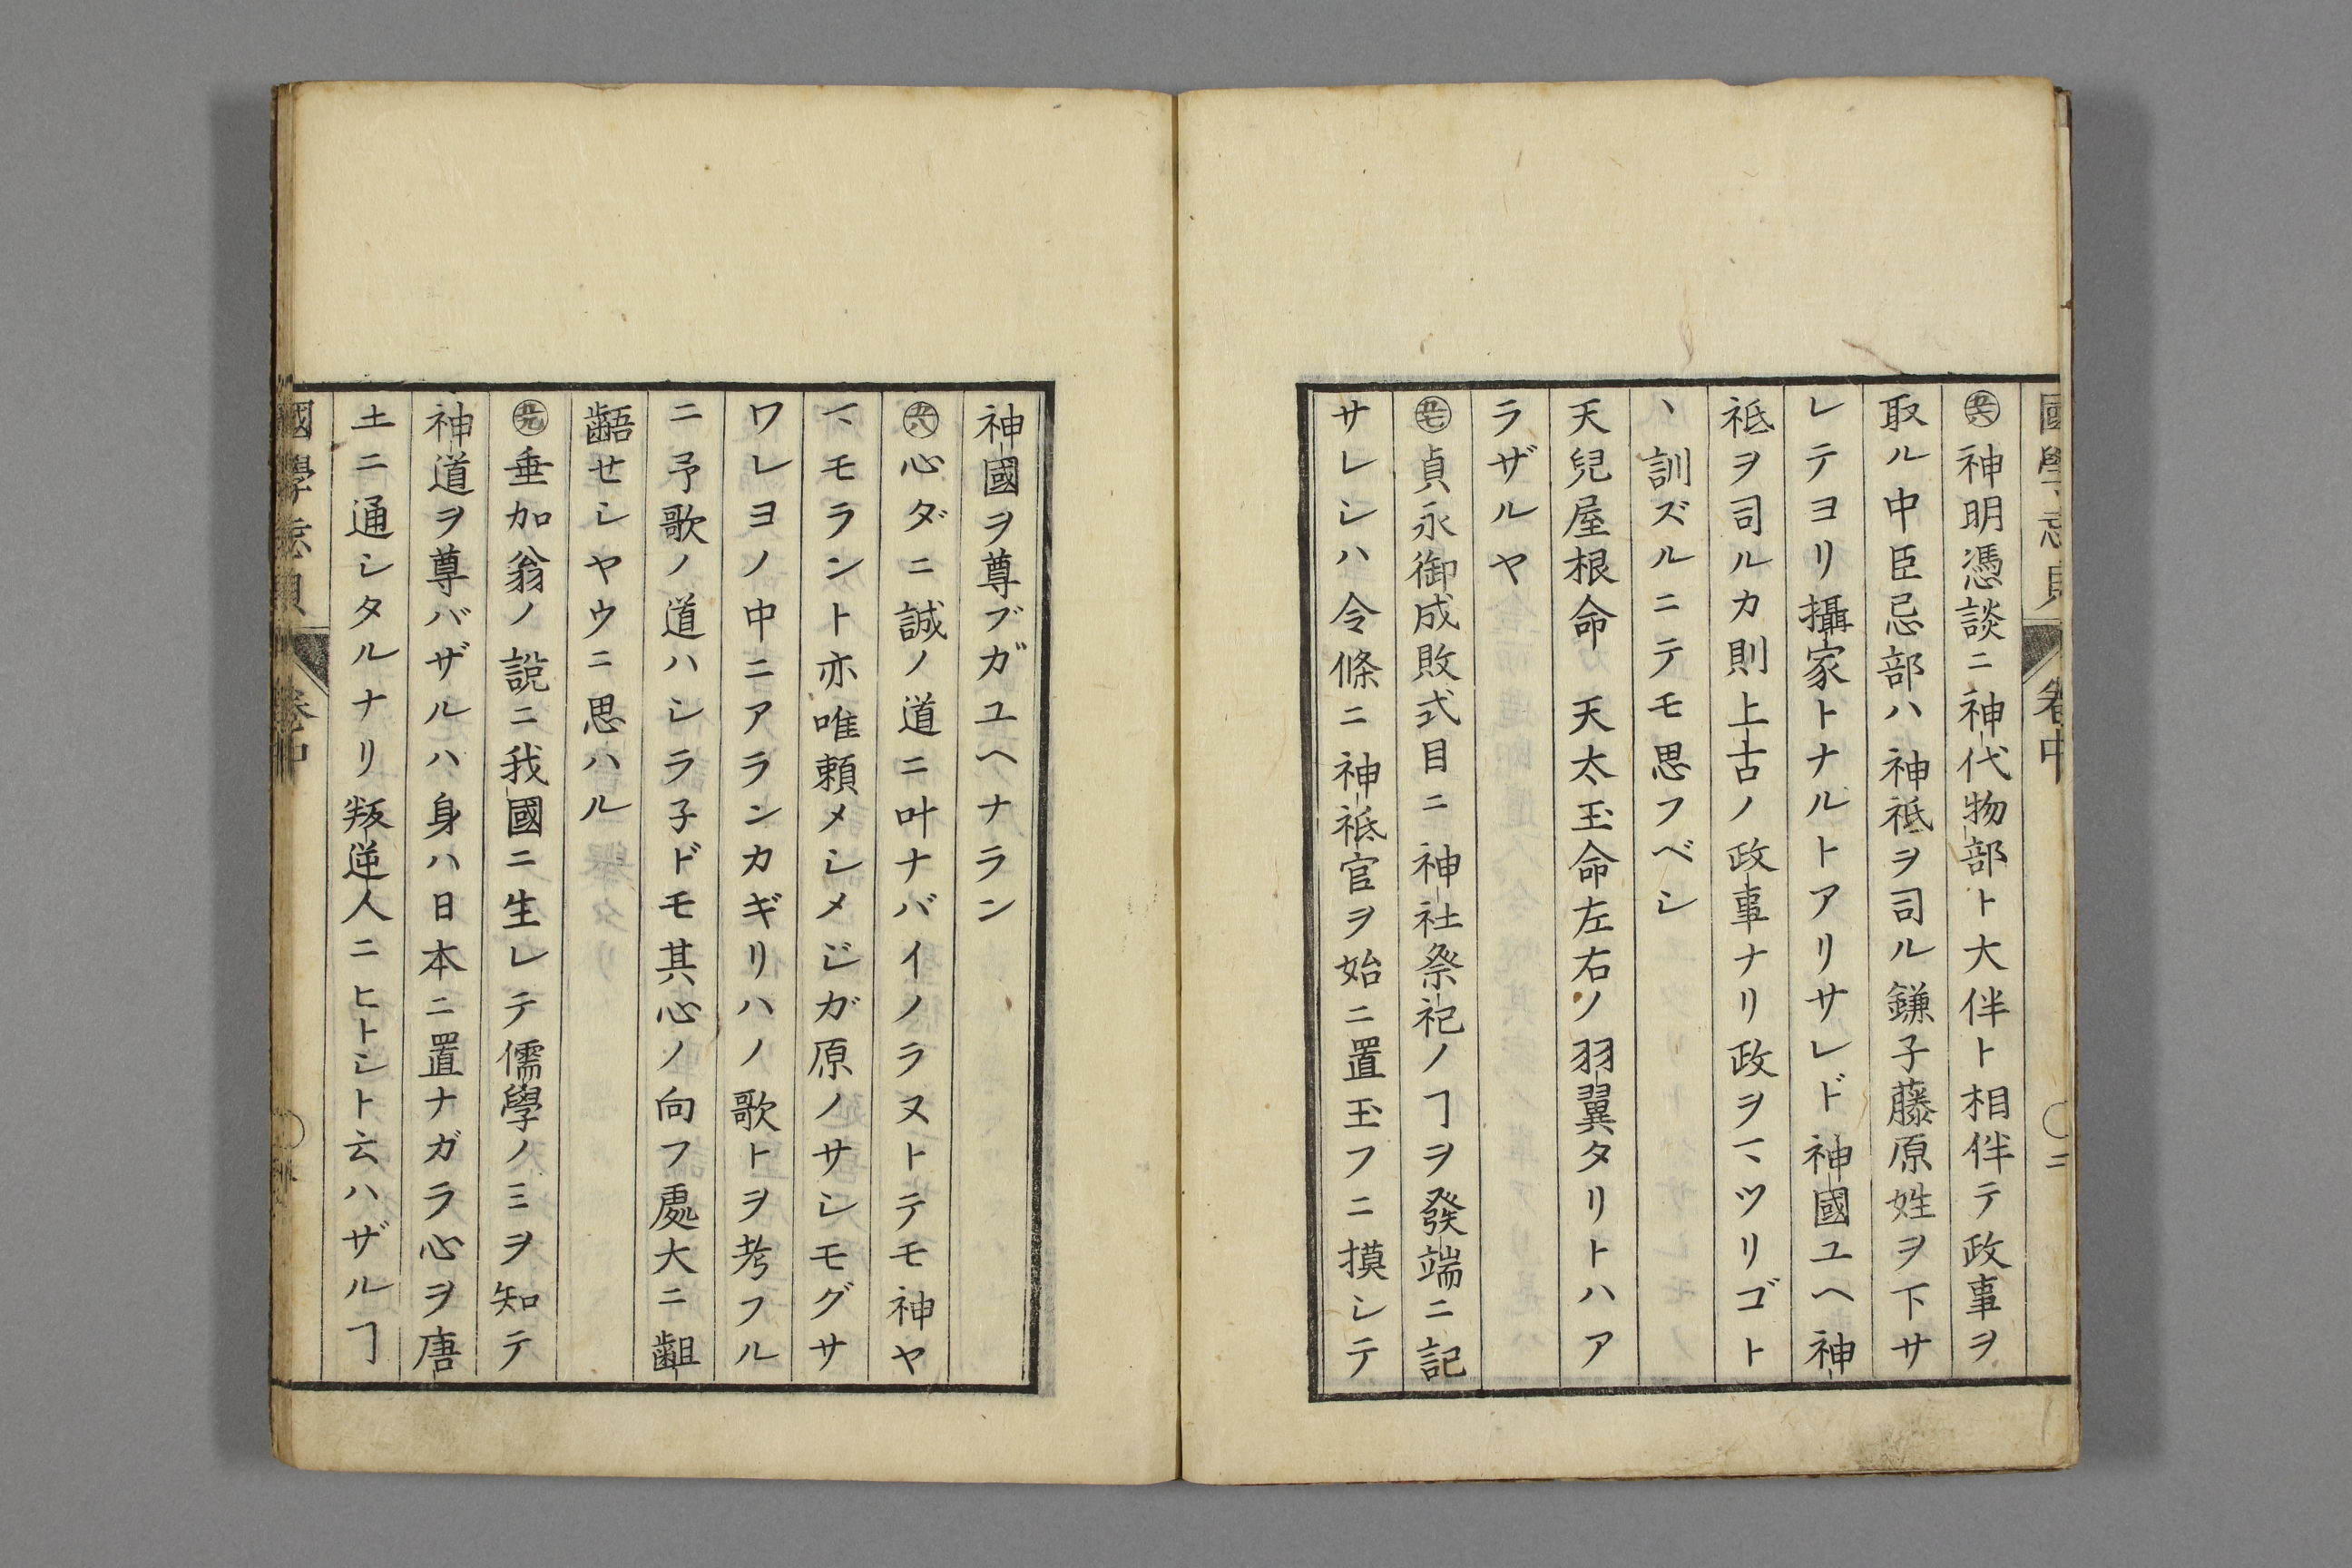 國學忘貝 卷中 〇二
㊄㊅神明憑談ニ神代物部ト大伴ト相伴テ政事ヲ
取ル中臣忌部ハ神祇ヲ司ル鎌子藤原姓ヲ下サ
レテヨリ攝家トナルトアリサレド神國ユヘ神
祇ヲ司ルカ則上古ノ政事ナリ政ヲマツリゴト
ヽ訓ズルニテモ思フベシ
天兒屋根命 天太玉命左右ノ羽翼タリトハア
ラザルヤ
㊄㊆貞永御成敗式目ニ神社祭祀ノヿヲ發端ニ記
サレシハ令條ニ神祗官ヲ始ニ置玉フニ摸シテ
神國ヲ尊ブガユヘナラン
㊄㊇心ダニ誠ノ道ニ叶ナバイノラヌトテモ神ヤ
マモラント亦唯頼メシメジガ原ノサシモグサ
ワレヨノ中ニアランカギリハノ歌トヲ考フル
ニ予歌ノ道ハシラ子ドモ其心ノ向フ處大ニ齟
齬セシヤウニ思ハル
㊄㊈垂加翁ノ説ニ我國ニ生レテ儒學ノミヲ知テ
神道ヲ尊バザルハ身ハ日本ニ置ナガラ心ヲ唐
土ニ通シタルナリ叛逆人ニヒトシト云ハザルヿ
國學忘貝 卷中